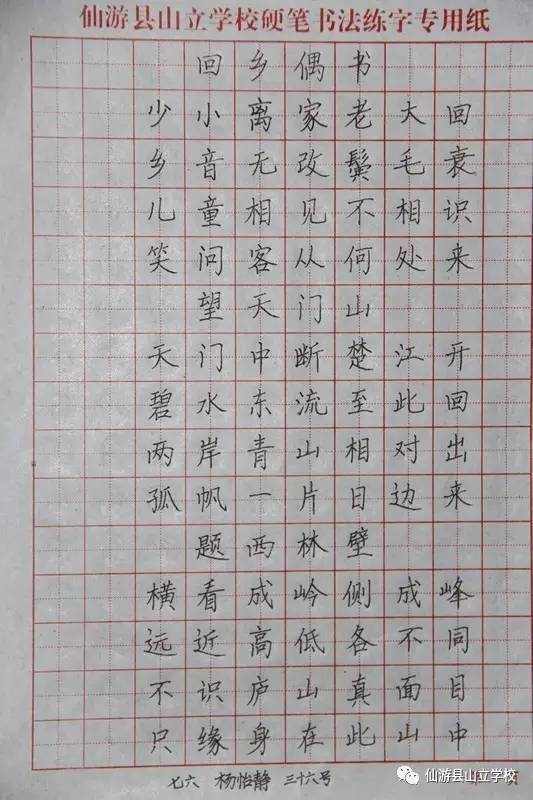 仙游县山立学校硬笔书法练字专用纸
回乡偶书
少小离家老大回
乡音无改鬓毛衰
儿童相见不相识
笑问客从何处来
望天门山
天门中断楚江开
碧水东流至此回
两岸青山相对出
孤帆一片日边来
题西林壁
横看成岭侧成峰
远近高低各不同
不识庐山真面目
只缘身在此山中
七六 杨怡静 三十六号
仙游县山立学校